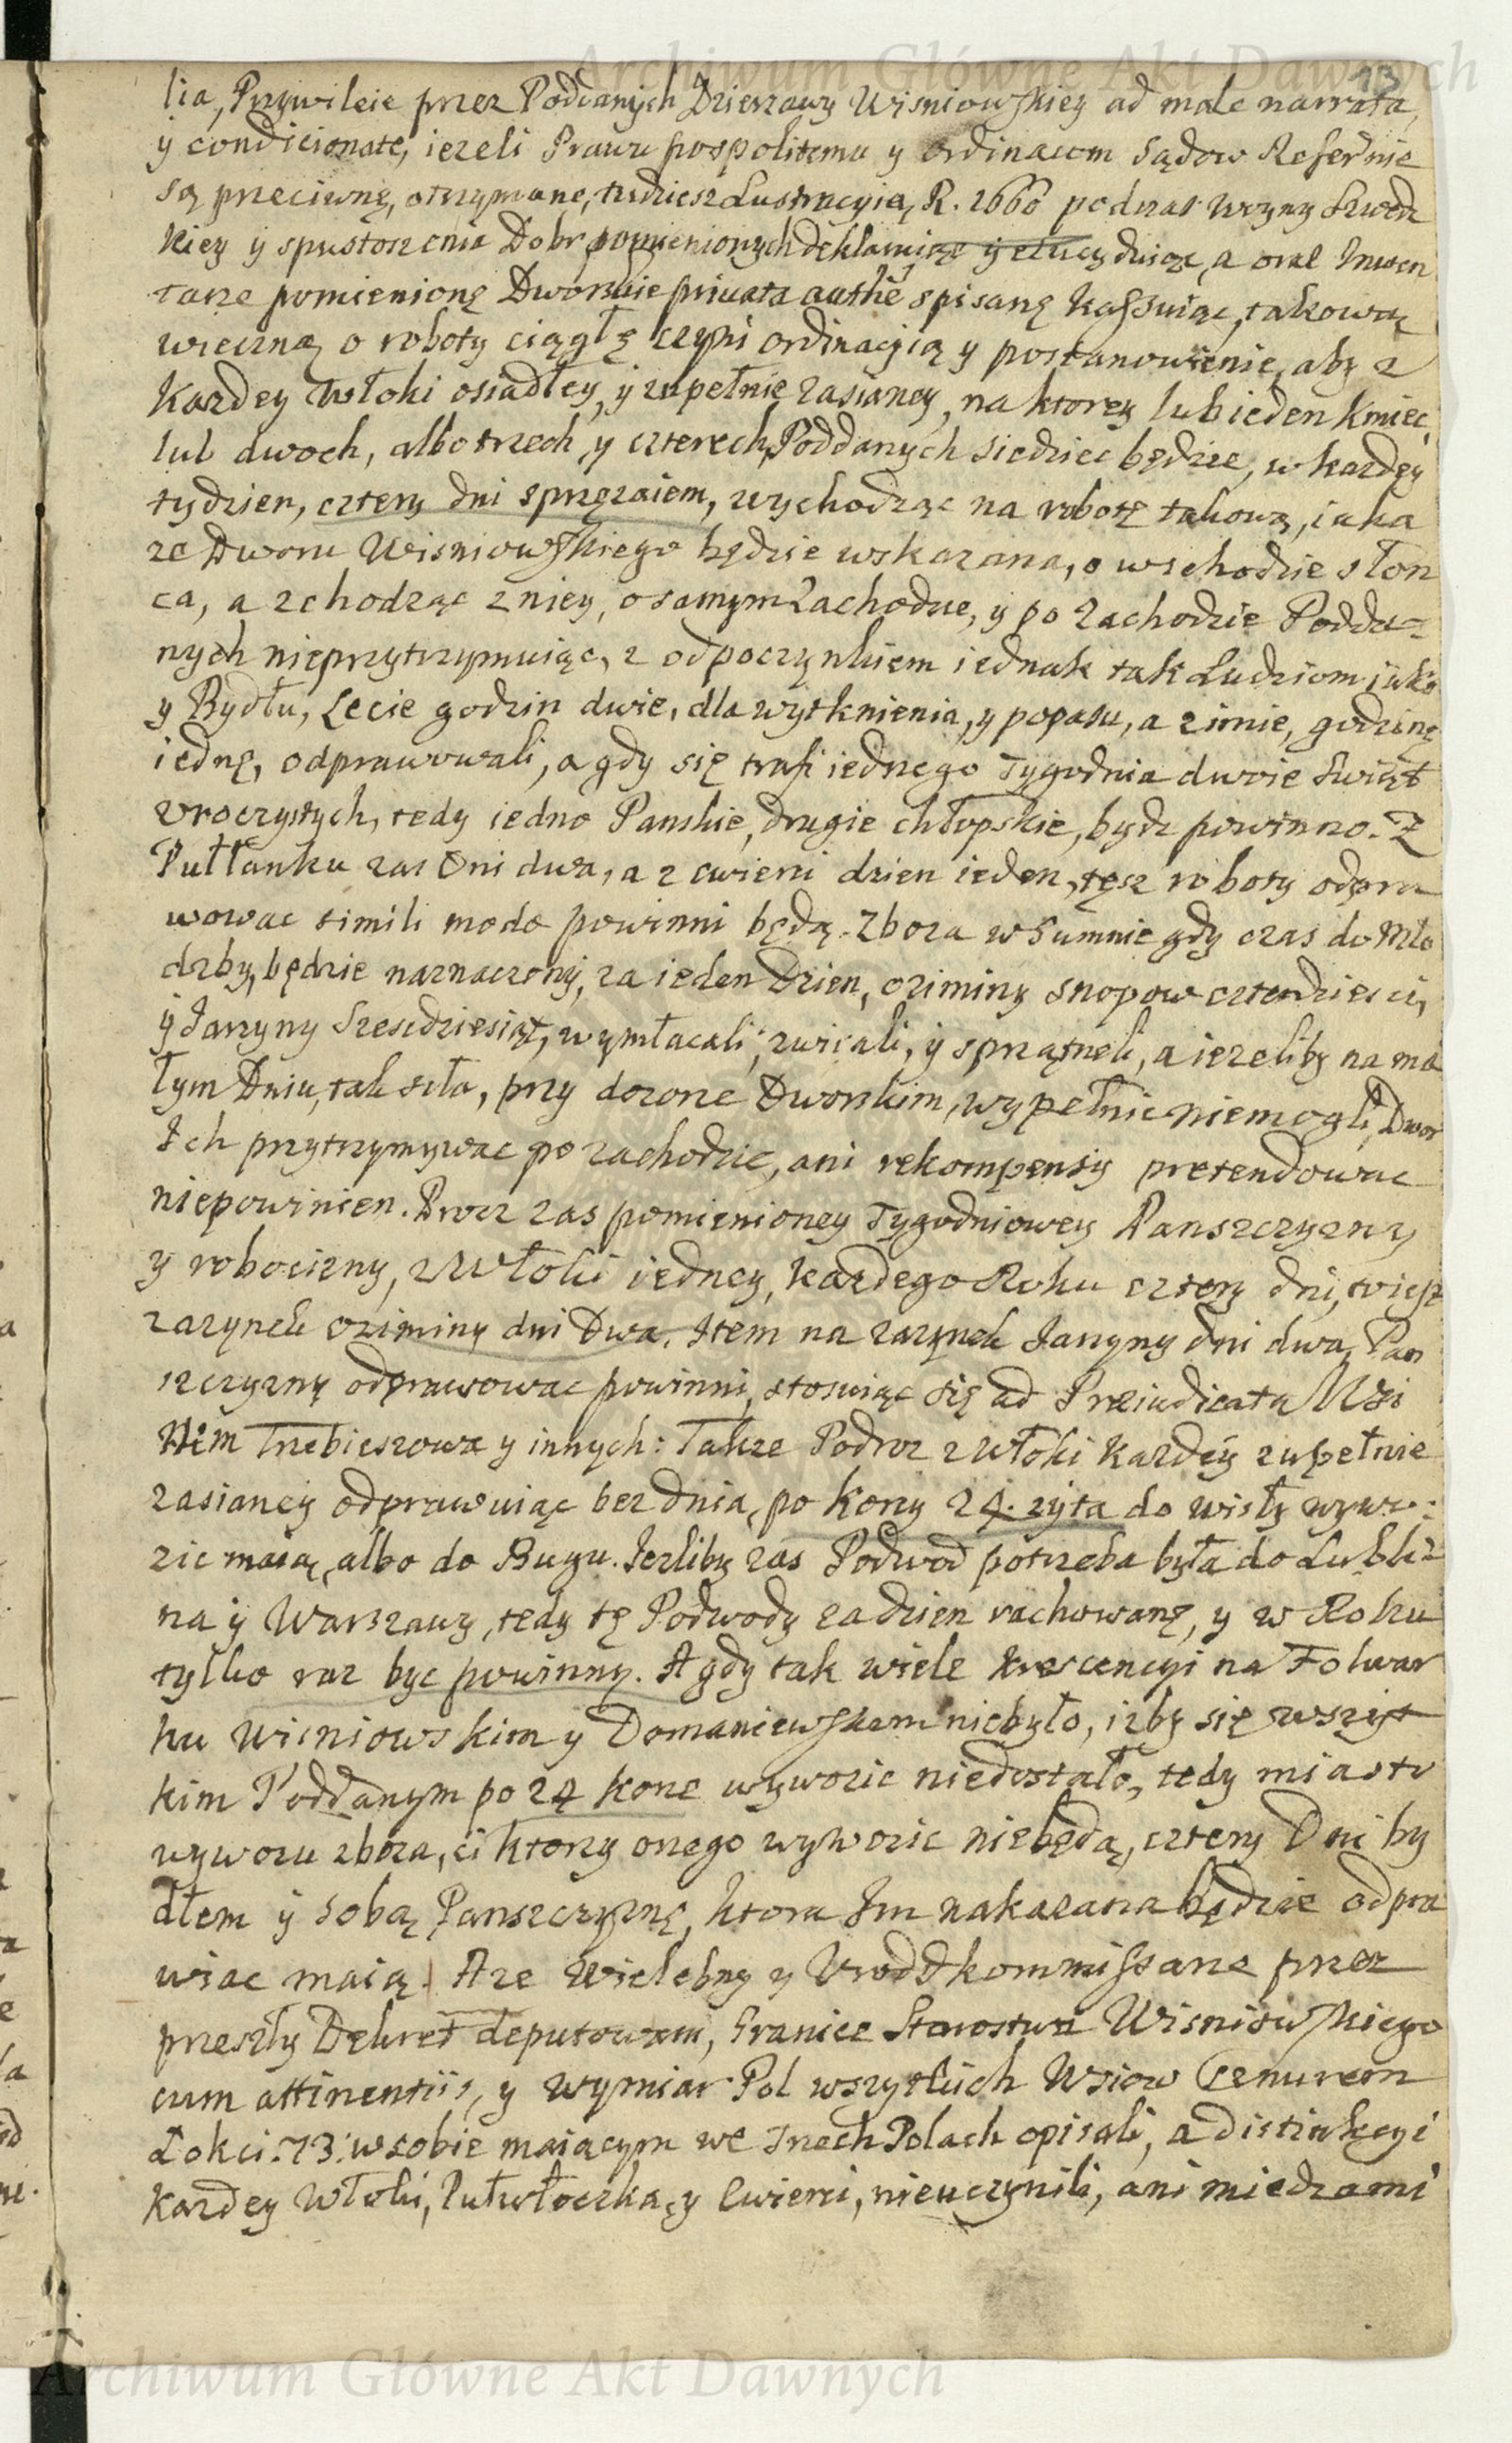 Archiwum Główne Akt Dawnych
13
lia, Przywileie przez Poddanych Dzierzawy Wisniowskiey ad male narrata,
y condicionate, iezeli Prawu pospolitemu y ordinacom Sądow Refer̃nie
są przeciwnę, otrzymane, tudziesz Lustracyią R. 1660 podczas woyny Szwedz
kiey y spustoszenia Dobr pomienionych deklaruiąc y elucyduiąc, a oraz Inwen
tarze pomienionę Dworskie privata authẽ spisanę kassuiąc, takową
wieczną o roboty ciągłę czyni ordinacyią y postanowienie, aby z
Kazdey Włoki osiadłey, y zupełnie zasianey, na ktorey lub ieden Kmiec,
lub dwoch, albo trzech, y czterech Poddanych siedziec będzie, w kazdy
tydzien, cztery dni sprzęzaiem, wychodząc na robotę takową, iaka
ze Dworu Wisniowskiego będzie wskazana, o wschodzie słon
ca, a zchodząc zniey, o samym Zachodzie, y po Zachodzie Podda=
nych nieprzytrzymuiąc, z odpoczynkiem iednak tak Ludziom iako
y Bydłu, Lecie godzin dwie, dla wytknienia, y popasu, a zimie, godzinę
iednę, odprawowali, a gdy się trafi iednego Tygodnia dwoie Swiąt
vroczystych, tedy iedno Panskie, drugie chłopskie, bydz powinno. Z
Pułłanku zas Dni dwa, a z cwierci dzien ieden, tęsz roboty odpra
wowac simili modo powinni będą. Zboza w Summie gdy czas do Mło
dzby, będzie naznaczony, za ieden Dzien, oziminy snopow czterdziesci,
y Jarzyny Szescdziesiąt, wymłacali, zwiiali, y sprzątneli, a iezeliby na ma
łym Dniu, tak siła, przy dozorze Dworskim, wypełnic niemogli, Dwor
Ich przytrzymywac po zachodzie, ani rekompensy pretendowac
niepowinien. Procz zas pomienioney Tygodniowey Panszczyzny
y robocizny, z Włoki iedney, kazdego Roku cztery dni, toiest
zazynek oziminy dni Dwa. Item na zazynek Jarzyny dni dwa, Pan
szczyznę odprawowac powinni, stosuiąc się ad Præiudicata Wsi
Trzebieszowa y innych: Takze Podroz z Włoki kazdey zupełnie
zasianey odprawuiąc bez dnia, po Korcy 24. zyta do wisły wywo:
zic maią, albo do Bugu. Jezliby zas Podwod potrzeba była do Lubli=
na y Warszawy, tedy tę Podwody za dzien rachowanę, y w Roku
tylko raz byc powinny. A gdy tak wiele krescencyi na Folwar
ku Wisniowskim y Domaniewskiem niebyło, izby się wszyst
kim Poddanym po 24 korce wywozic niedostało, tedy miasto
wywozu zboza, ci ktorzy onego wywozic niebędą, cztery Dni by
dłem y sobą Panszczyznę, ktora Im nakazana będzie odpra
wiac maią. A ze Wielebny y Vrodd kommissarze przez
przeszły Dekret deputowani, Granice Starostwa Wisniowskiego
cum attinentiis, y wymiar Pol wszytkich Wsiow Cznurem
Łokci. 73. w sobie maiącym we Trzech Polach opisali, a distinkcyi
Kazdey Włoki, Pułwłoczka, y Cwierci, nieuczynili, ani miedzami
Archiwum Główne Akt Dawnych